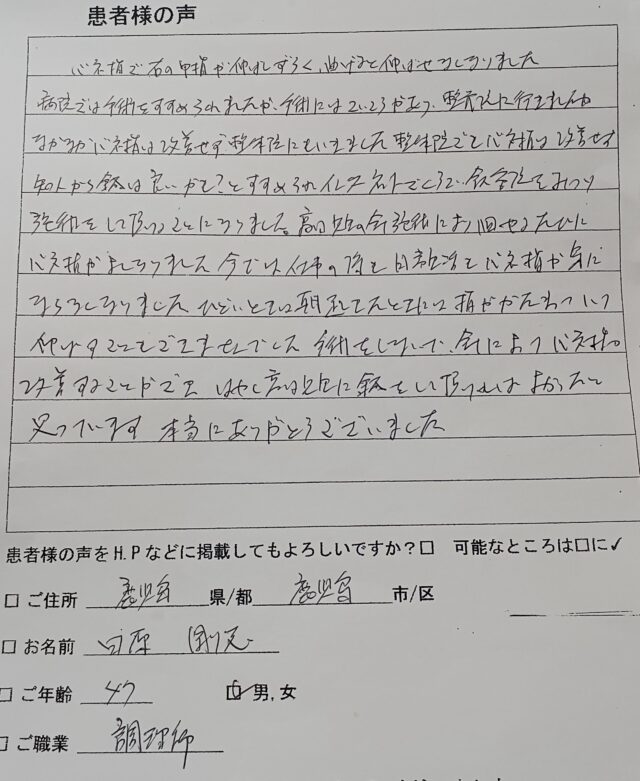 患者様の声
バネ指で右の中指が伸ばしずらく、曲げると伸ばせなくなりました
病院では手術をすすめられましたが、手術にはていこうがあり、整骨院に行きましたが
なかなかバネ指は改善せず整体院にもいきました 整体院でもバネ指は改善せず
知人から鍼は良いかも?とすすめられインターネットでしらべ、鍼灸院をみつけ
施術をして頂くことになりました。高口先生の針施術により回せるたびに
バネ指がよくなりました 今では仕事の時も日常生活もバネ指が気に
ならなくなりました ひどいときは朝起きたときには指がかたまっていて
伸ばすこともできませんでした 手術をしないで、針によってバネ指の
改善することができ はやく高口先生に鍼をして頂ければよかったと
思っています 本当にありがとうございました
患者様の声をH.Pなどに掲載してもよろしいですか?□ 可能なところは□に✓
□ ご住所 鹿児島 県/都 鹿児島 市/区
□ お名前
□ ご年齢 47 ☑ 男, 女
□ ご職業 調理師